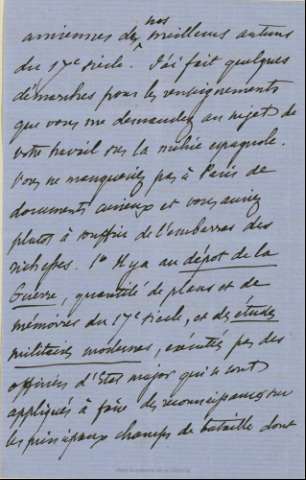 anciennes de nos meilleurs auteurs
du 17e siècle. J'ai fait quelques
démarches pour les renseignements
que vous me demandez au sujet de
votre travail sur la milice espagnole.
Vous ne manqueriez pas à Paris de
documents curieux et vous auriez
plutot à souffrir de l'embarras des
richesses. 1o Il y a au dépôt de la
Guerre, quantité de plans et de
mémoires du 17e siecle, et des études
militaires modernes, exécutés par des
officiers d'Etat major qui se sont
appliqués à faire des reconnaissances sur
les principaux champs de bataille dont